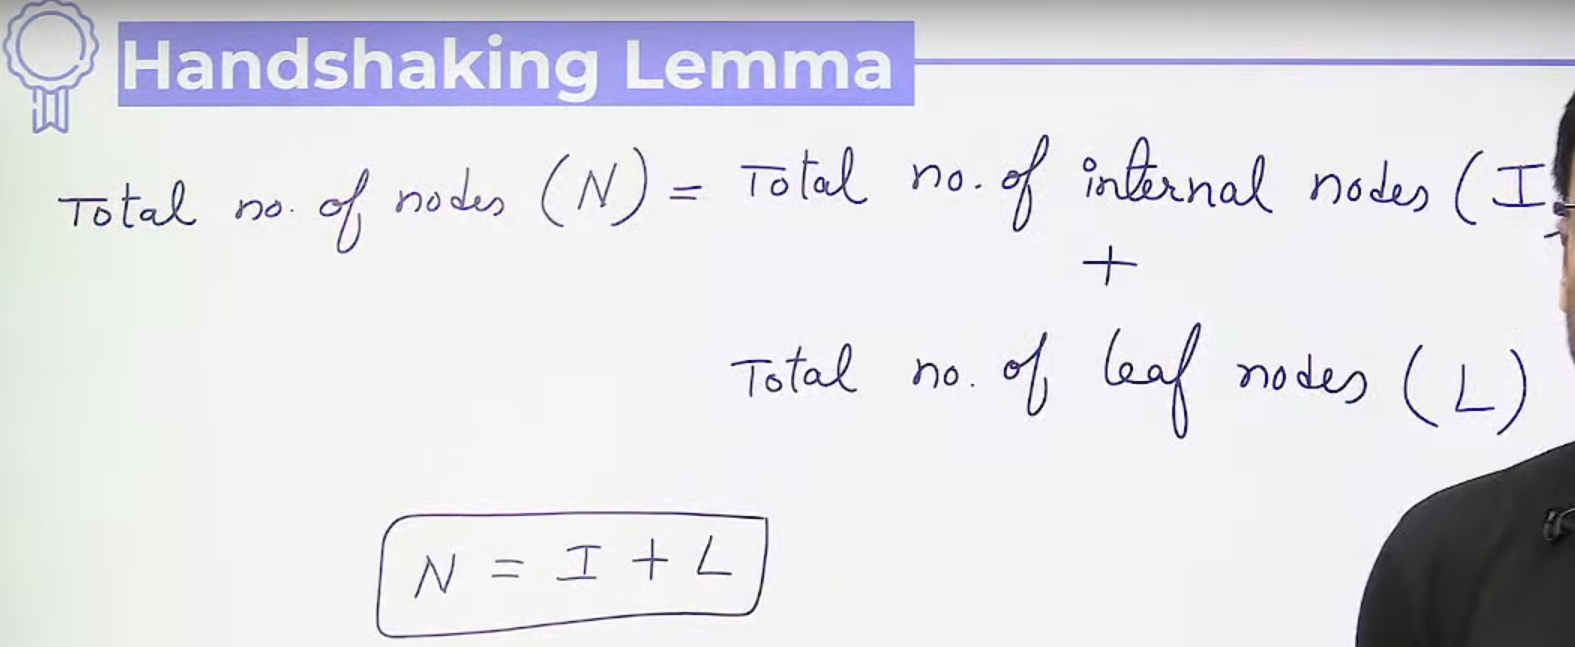 Handshaking Lemma
Total no. of nodes (N) = Total no. of internal nodes (I
+
Total no. of leaf nodes (L)
N = I + L